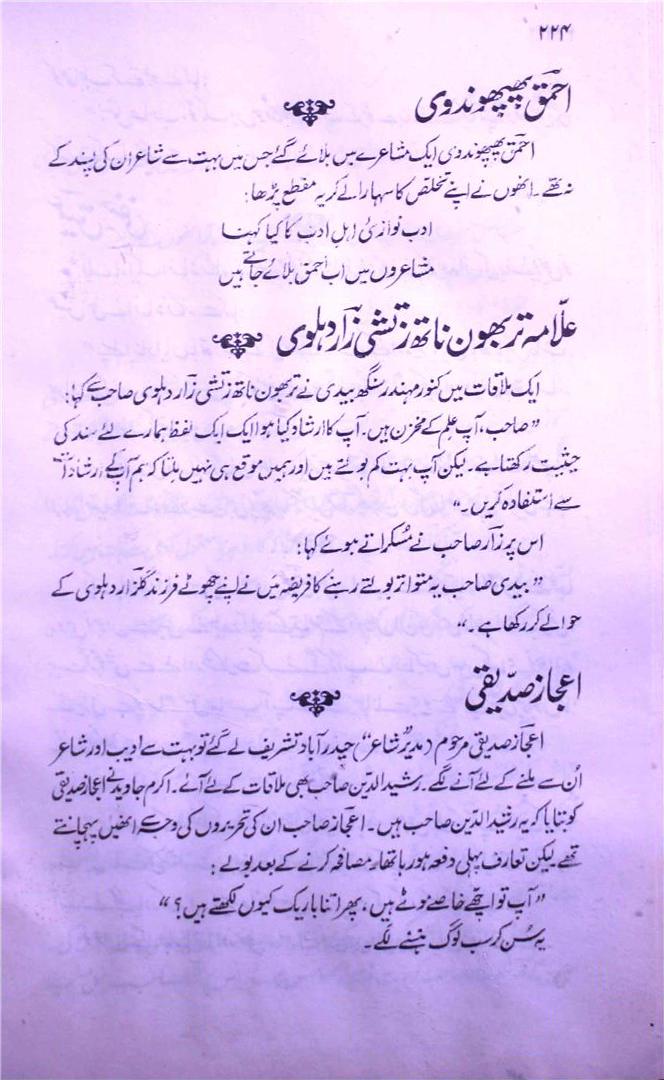 ۲۲۴
احمق پھپھوندوی
احمق پھپھوندوی ایک مشاعرے میں بلائے گئے جس میں بہت سے شاعر ان کی پسند کے
نہ تھے۔ انھوں نے اپنے تخلص کا سہارا لے کر یہ مقطع پڑھا:
ادب نوازئ اہلِ ادب کا کیا کہنا
مشاعروں میں اب احمق بلائے جاتے ہیں
علّامہ تربھون ناتھ زتشی زار دہلوی
ایک ملاقات میں کنور مہندر سنگھ بیدی نے تربھون ناتھ زتشی زار دہلوی صاحب سے کہا:
”صاحب، آپ علم کے مخزن ہیں۔ آپ کا ارشاد کیا ہوا ایک ایک لفظ ہمارے لئے سند کی
حیثیت رکھتا ہے۔ لیکن آپ بہت کم بولتے ہیں اور ہمیں موقع ہی نہیں ملتا کہ ہم آپ کے ارشادات
سے استفادہ کریں۔“
اس پر زار صاحب نے مُسکراتے ہوئے کہا:
”بیدی صاحب یہ متواتر بولتے رہنے کا فریضہ میں نے اپنے چھوٹے فرزند گلزار دہلوی کے
حوالے کر رکھا ہے۔“
اعجاز صدّیقی
اعجاز صدیقی مرحوم (مدیر ”شاعر“) حیدرآباد تشریف لے گئے تو بہت سے ادیب اور شاعر
اُن سے ملنے کے لئے آنے لگے۔ رشید الدین صاحب بھی ملاقات کے لئے آئے۔ اکرم جاوید نے اعجاز صدیقی
کو بتایا کہ یہ رشید الدین صاحب ہیں۔ اعجاز صاحب ان کی تحریروں کی وجہ سے انھیں پہچانتے
تھے لیکن تعارف پہلی دفعہ ہو رہا تھا۔ مصافحہ کرنے کے بعد بولے:
”آپ تو اچھے خاصے موٹے ہیں، پھر اتنا باریک کیوں لکھتے ہیں؟“
یہ سُن کر سب لوگ ہنسنے لگے۔